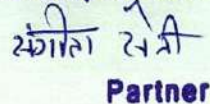 संगीता सेत्री
Partner